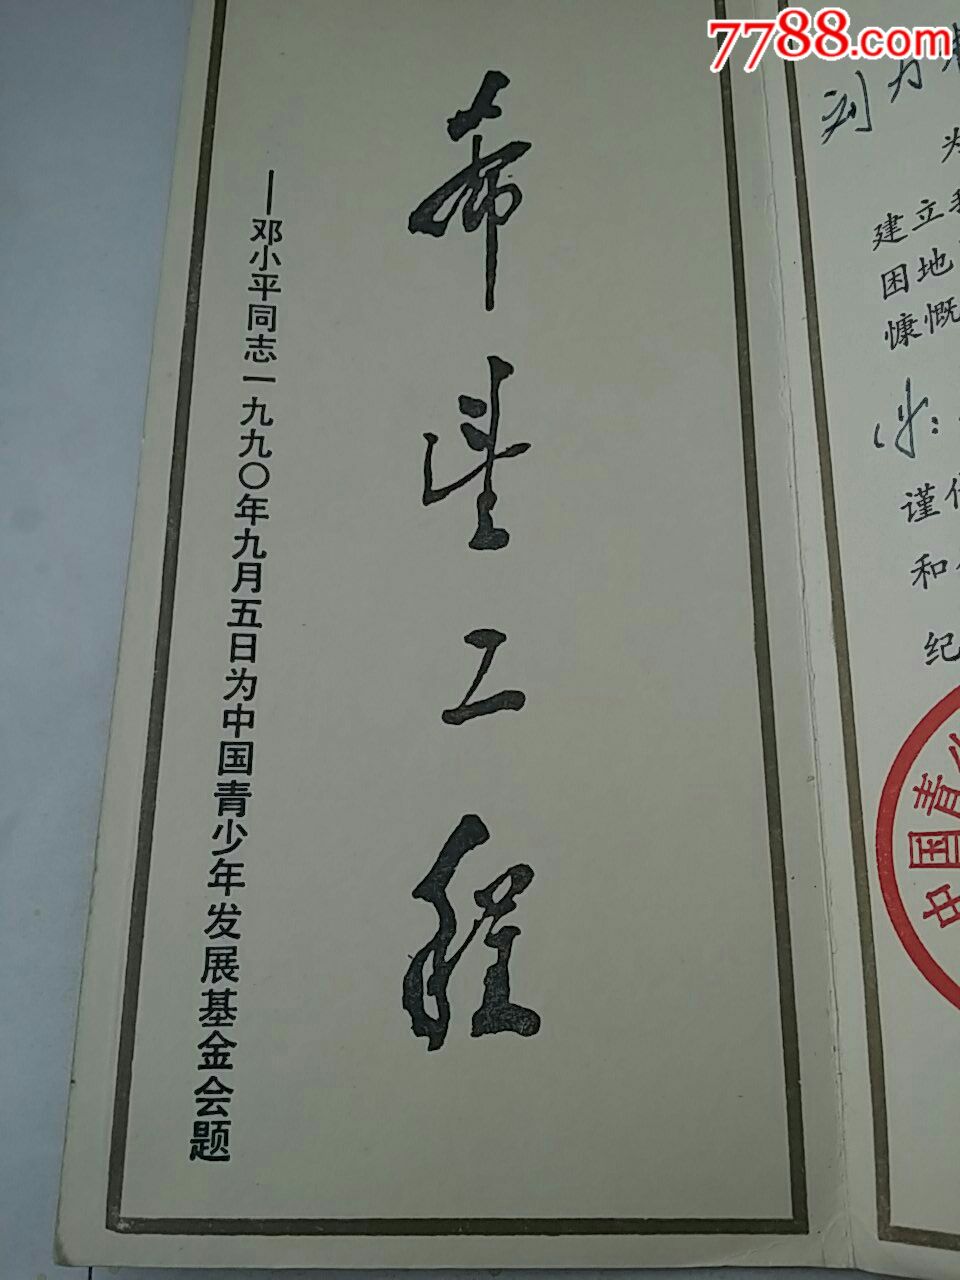 7788.com
希望工程
—邓小平同志一九九〇年九月五日为中国青少年发展基金会题
刘
建立
困地
慷慨
谨
和
纪
中国青少